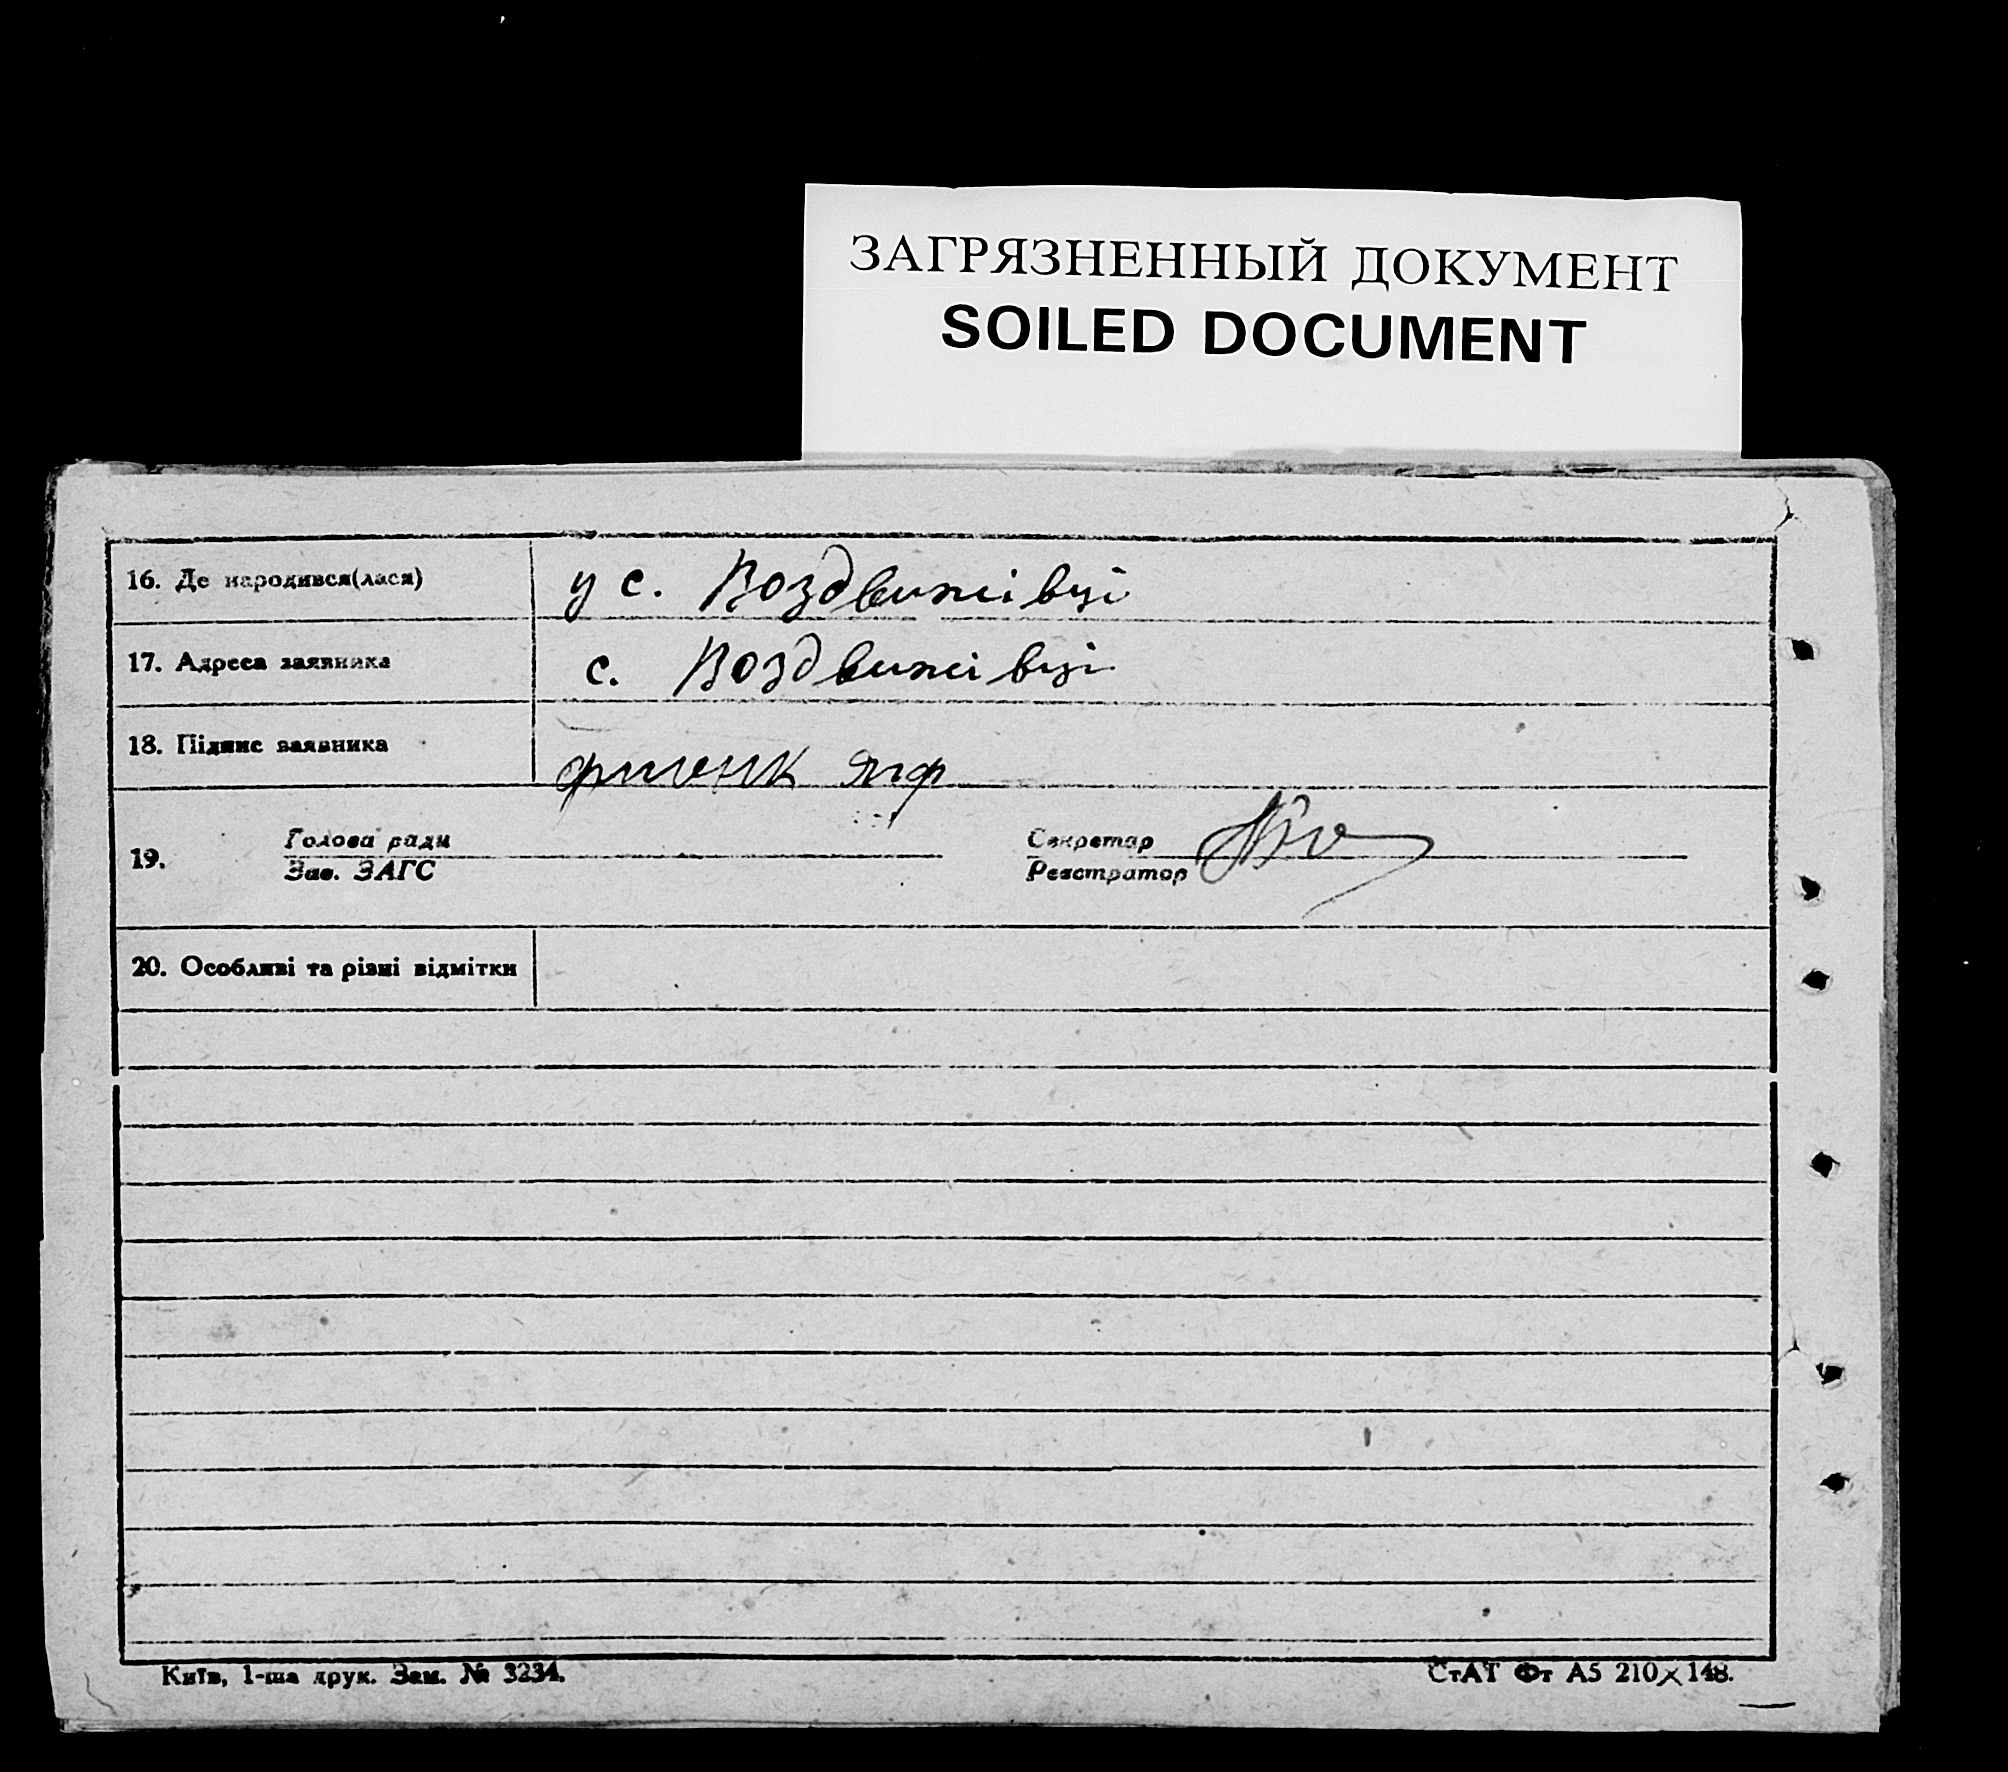 ЗАГРЯЗНЕННЫЙ ДОКУМЕНТ
SOILED DOCUMENT
16. Де народився(лася) у с. Воздвижівці
17. Адреса заявника с. Воздвижівці
18. Підпис заявника
19. Голова ради Секретар
Зав. ЗАГС Реєстратор
20. Особливі та різні відмітки
Київ, 1-ша друк. Зам. № 3234. СтАТ Фт А5 210×148.